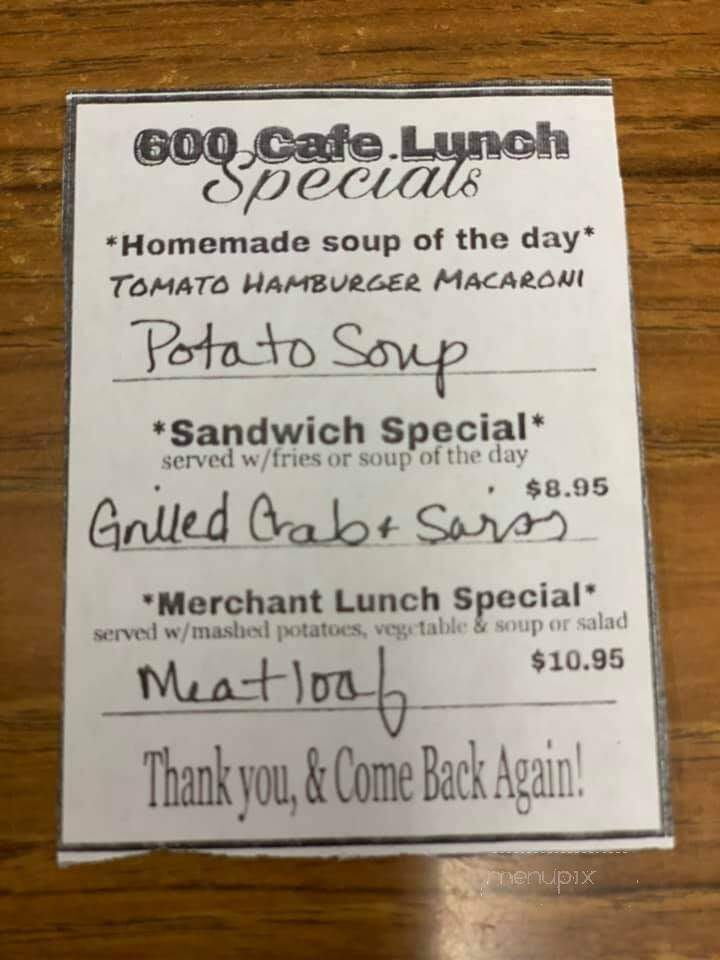 600 Cafe Lunch
Specials
*Homemade soup of the day*
TOMATO HAMBURGER MACARONI
Potato Soup
*Sandwich Special*
served w/fries or soup of the day
$8.95
Grilled Crab + Swiss
*Merchant Lunch Special*
served w/mashed potatoes, vegetable & soup or salad
$10.95
Meatloaf
Thank you, & Come Back Again!
menupix